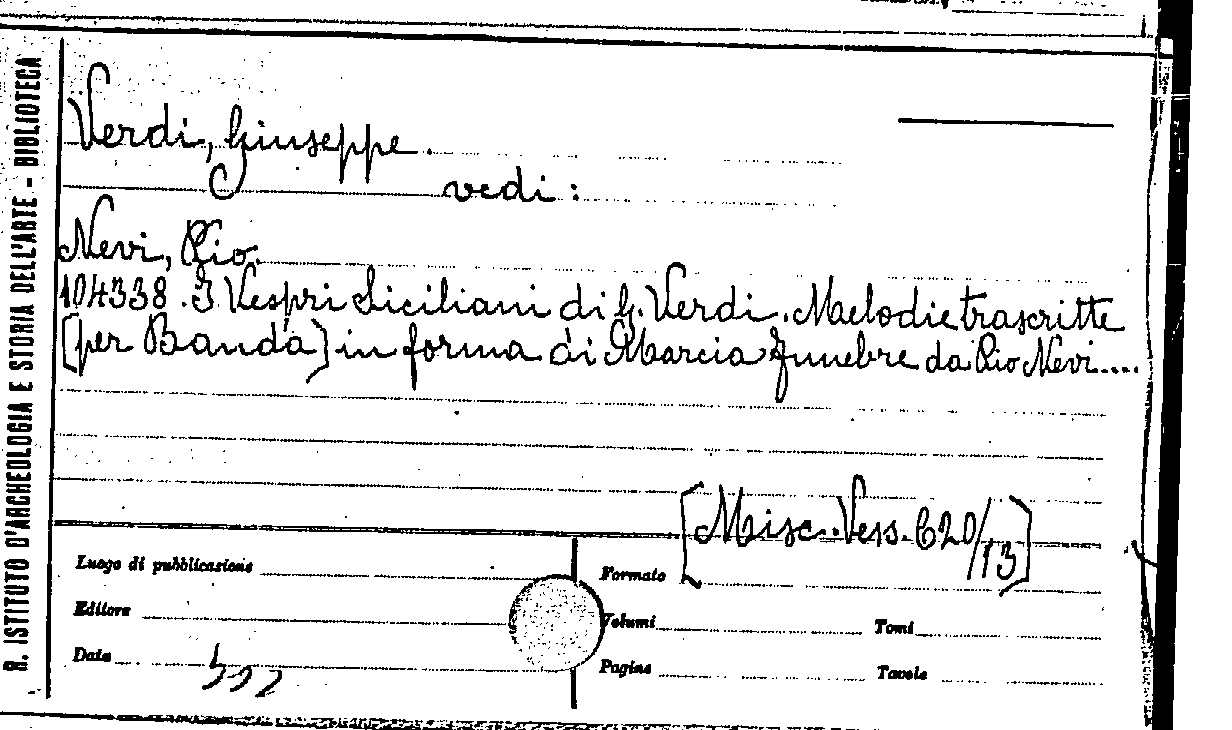 R. ISTITUTO D'ARCHEOLOGIA E STORIA DELL'ARTE - BIBLIOTECA
Verdi, Giuseppe.
vedi:
Nevi, Pio.
104338. I Vespri Siciliani di G. Verdi. Melodie trascritte
[per Banda] in forma di Marcia funebre da Pio Nevi....
[Misc. Vess. C20/13]
Luogo di pubblicazione
Formato
Editore
Volumi
Tomi
Data
Pagine
Tavole